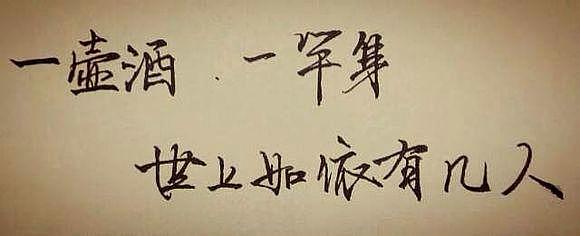 一壺酒 . 一竿身
世上如依有几人